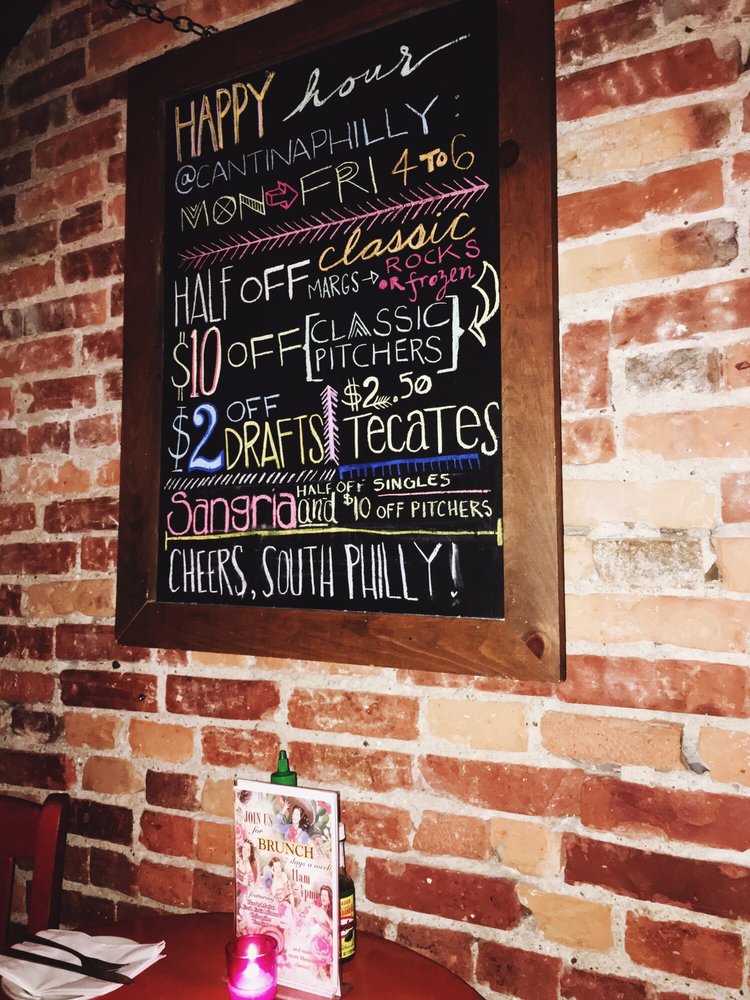 HAPPY hour
@CANTINAPHILLY:
MON → FRI 4 TO 6
HALF OFF classic
MARGS → ROCKS
OR frozen
$10 OFF [CLASSIC
PITCHERS}
$2 OFF
DRAFTS
$2.50
TECATES
Sangria HALF OFF SINGLES
and $10 OFF PITCHERS
CHEERS, SOUTH PHILLY!
JOIN US
for
BRUNCH
7 days a week
11am
featuring